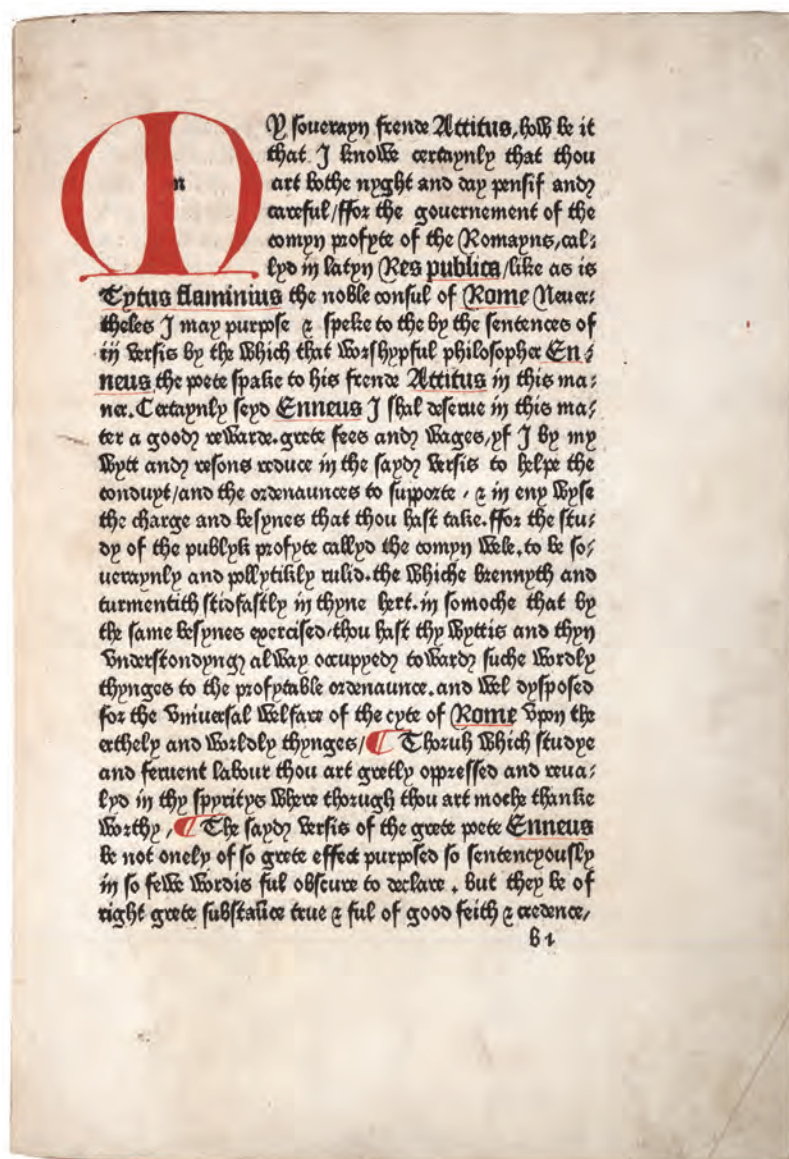 MY souerayn frende Attitus, how be it
that I knowe certaynly that thou
m art bothe nyght and day pensif and
careful/ffor the gouernement of the
comyn profyte of the Romayns, cal⸗
lyd in latyn Res publica/like as is
Tytus flaminius the noble consul of Rome Neuer⸗
theles I may purpose & speke to the by the sentences of
iij versis by the which that worshypful philosopher En⸗
neus the poete spake to his frende Attitus in this ma⸗
ner. Certaynly seyd Enneus I shal deserue in this ma⸗
ter a good rewarde. grete fees and wages, yf I by my
wytt and resons reduce in the sayd versis to helpe the
conduyt/and the ordenaunces to supporte, & in eny wyse
the charge and besynes that thou hast take. ffor the stu⸗
dy of the publyk profyte callyd the comyn wele. to be so⸗
ueraynly and pollytikly rulid. the whiche brennyth and
turmentith stidfastly in thyne hert. in somoche that by
the same besynes exercised, thou hast thy wyttis and thyn
vnderstondyng alway occupyed toward suche wordly
thynges to the profytable ordenaunce. and wel dysposed
for the vniuersal welfare of the cyte of Rome vpon the
erthely and worldly thynges/ ¶ Thoruh which studye
and feruent labour thou art gretly oppressed and reua⸗
lyd in thy spyritys where thorugh thou art moche thanke
worthy, ¶ The sayd versis of the grete poete Enneus
be not onely of so grete effect purposed so sentencyously
in so fewe wordis ful obscure to declare. but they be of
right grete substaūce true & ful of good feith & credence,
b 1